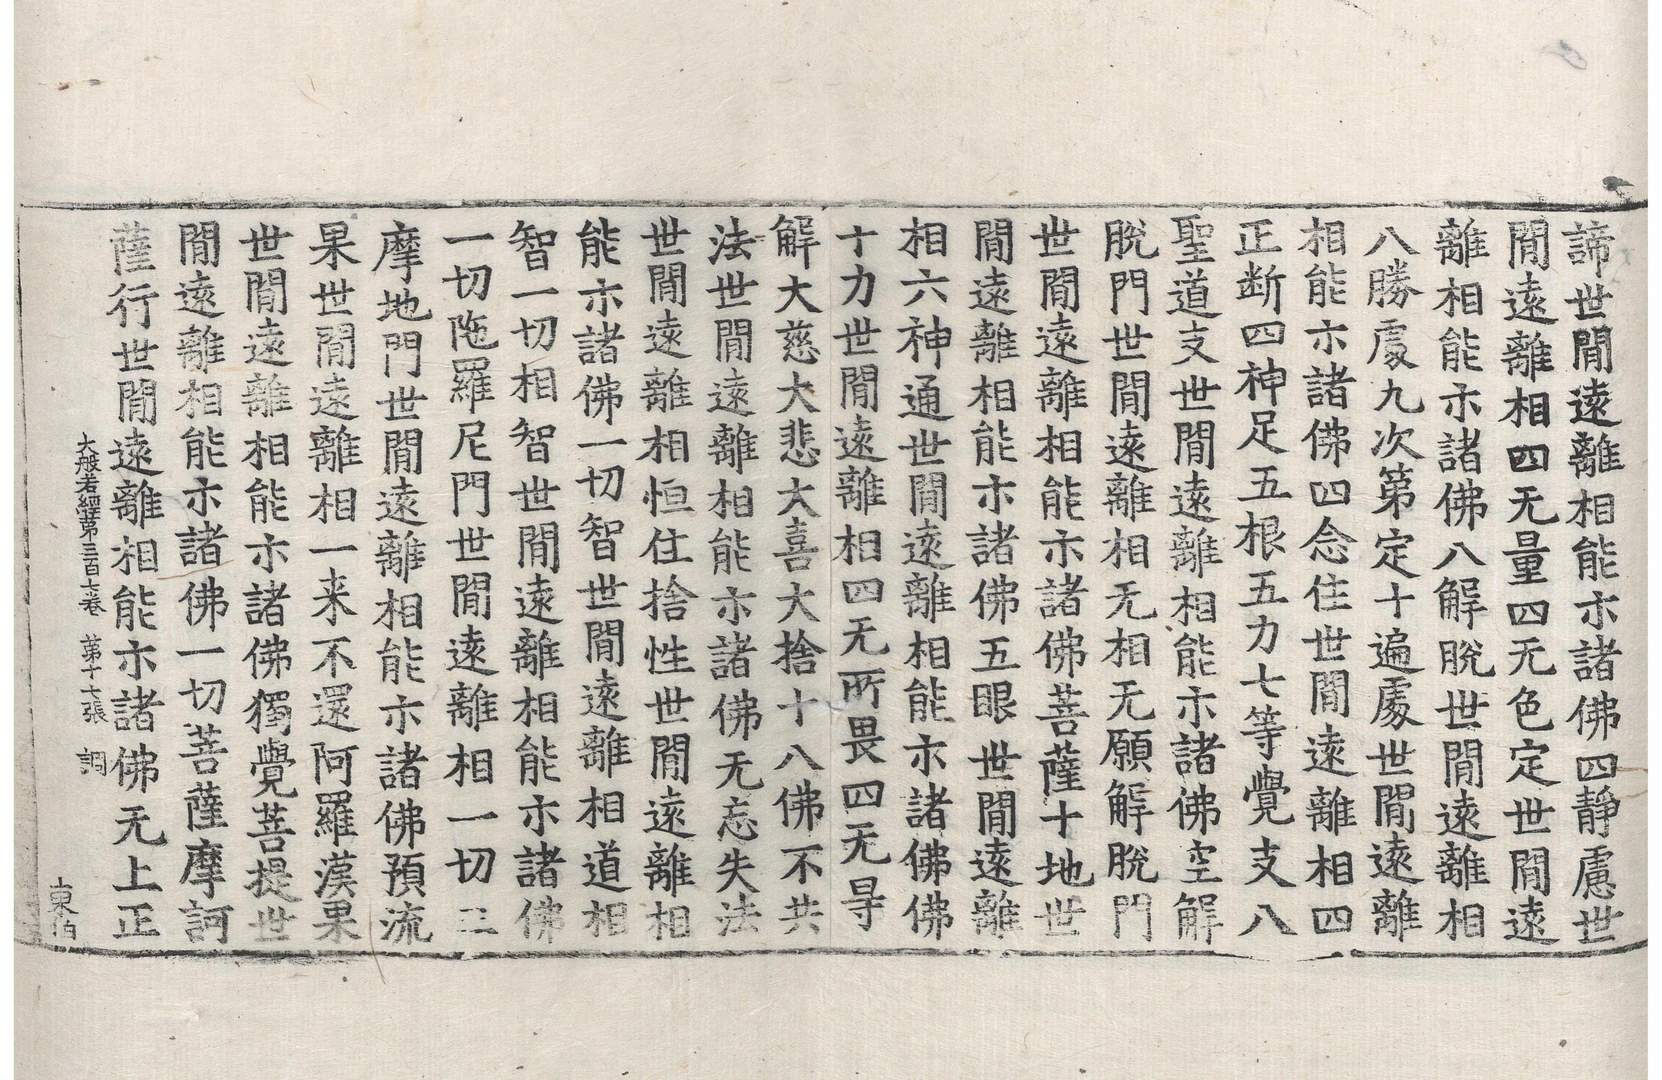 諦世間遠離相能示諸佛四靜慮世
間遠離相四无量四无色定世間遠
離相能示諸佛八解脫世間遠離相
八勝處九次第定十遍處世間遠離
相能示諸佛四念住世間遠離相四
正断四神足五根五力七等覺支八
聖道支世間遠離相能示諸佛空解
脫門世間遠離相无相无願解脫門
世間遠離相能示諸佛菩薩十地世
間遠離相能示諸佛五眼世間遠離
相六神通世間遠離相能示諸佛佛
十力世間遠離相四无所畏四无㝵
解大慈大悲大喜大捨十八佛不共
法世間遠離相能示諸佛无忘失法
世間遠離相恒住捨性世間遠離相
能示諸佛一切智世間遠離相道相
智一切相智世間遠離相能示諸佛
一切陁羅尼門世間遠離相一切三
摩地門世間遠離相能示諸佛預流
果世間遠離相一来不還阿羅漢果
世間遠離相能示諸佛獨覺菩提世
間遠離相能示諸佛一切菩薩摩訶
薩行世間遠離相能示諸佛无上正
大般若經第三百七卷 第十七張 調
東伯